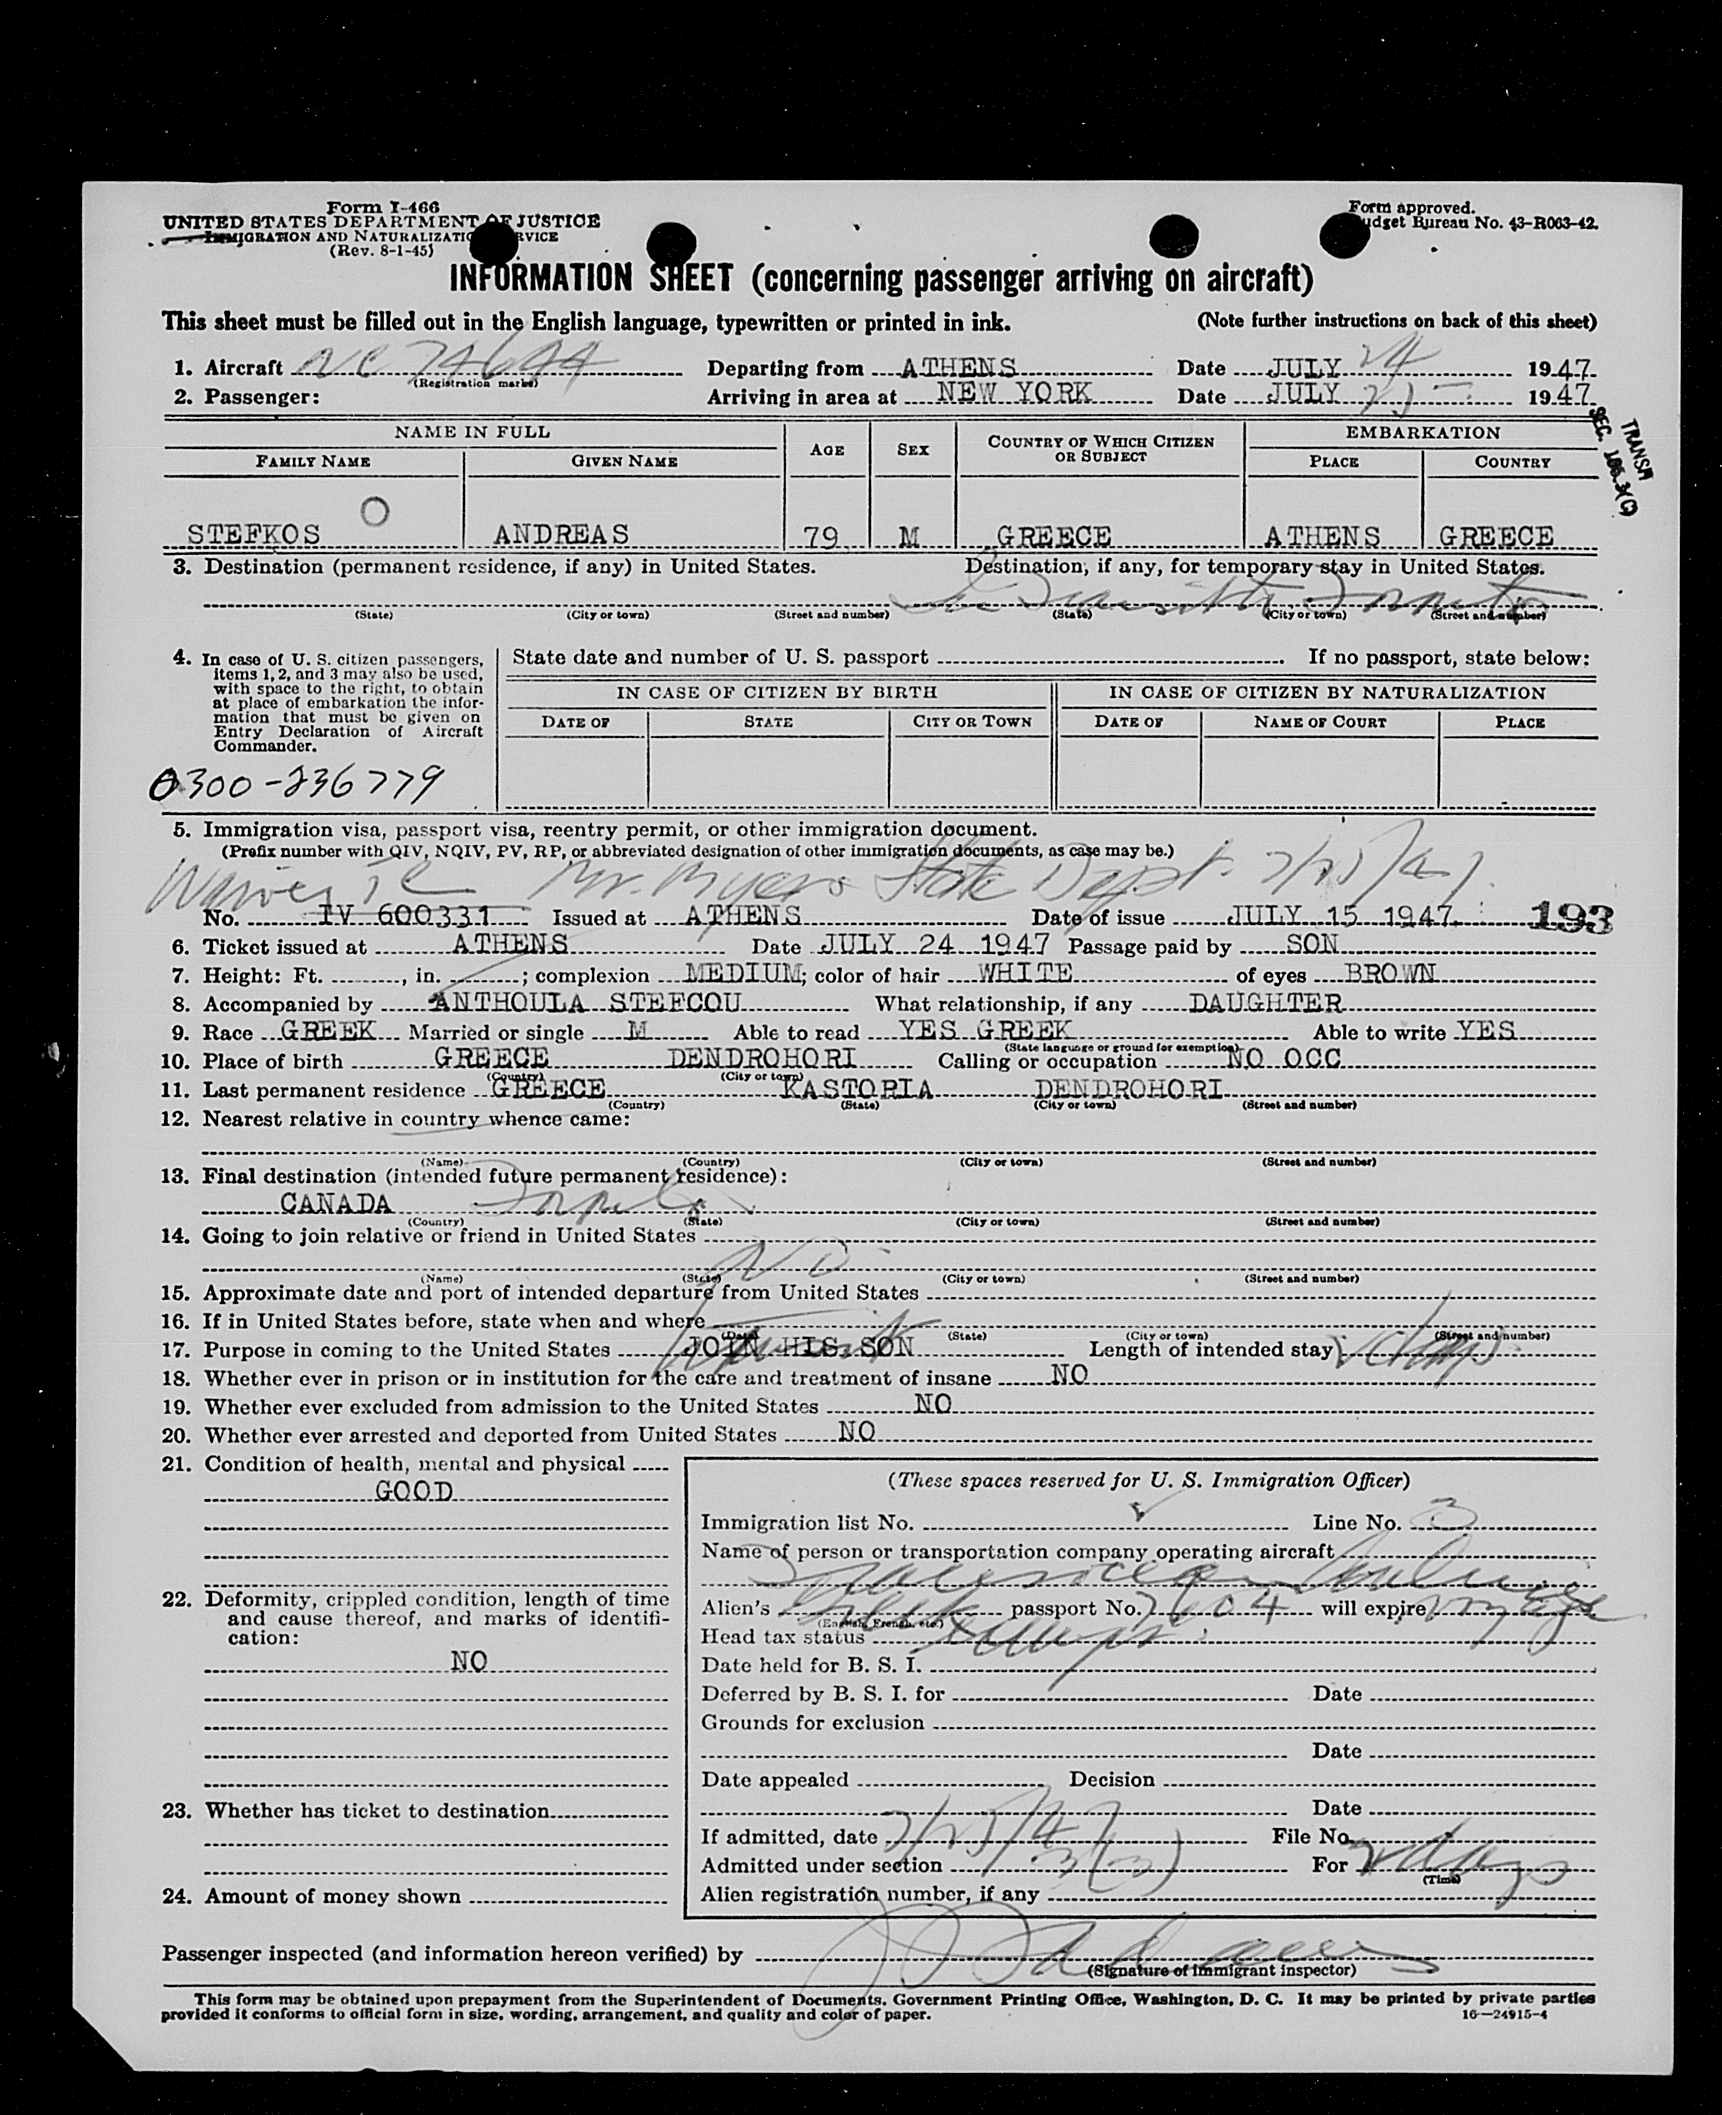 Form I-466
UNITED STATES DEPARTMENT OF JUSTICE
IMMIGRATION AND NATURALIZATION SERVICE
(Rev. 8-1-45)
Form approved.
Budget Bureau No. 43-R063-42.
INFORMATION SHEET (concerning passenger arriving on aircraft)
This sheet must be filled out in the English language, typewritten or printed in ink. (Note further instructions on back of this sheet)
1. Aircraft NC 74644 Departing from ATHENS Date JULY 24 1947
(Registration marks)
2. Passenger: Arriving in area at NEW YORK Date JULY 25 1947
TRANSA
SEC. 166.3(C)
NAME IN FULL AGE SEX COUNTRY OF WHICH CITIZEN OR SUBJECT EMBARKATION
FAMILY NAME GIVEN NAME PLACE COUNTRY
STEFKOS O ANDREAS 79 M GREECE ATHENS GREECE
3. Destination (permanent residence, if any) in United States. Destination, if any, for temporary stay in United States.
In Transit to Toronto
(State) (City or town) (Street and number) (State) (City or town) (Street and number)
4. In case of U. S. citizen passengers,
items 1, 2, and 3 may also be used,
with space to the right, to obtain
at place of embarkation the infor-
mation that must be given on
Entry Declaration of Aircraft
Commander.
State date and number of U. S. passport If no passport, state below:
IN CASE OF CITIZEN BY BIRTH IN CASE OF CITIZEN BY NATURALIZATION
DATE OF STATE CITY OR TOWN DATE OF NAME OF COURT PLACE
0300-236779
5. Immigration visa, passport visa, reentry permit, or other immigration document.
(Prefix number with QIV, NQIV, PV, RP, or abbreviated designation of other immigration documents, as case may be.)
Waiver Mr. Myers State Dept. 7/25/47
No. IV 600331 Issued at ATHENS Date of issue JULY 15 1947 193
6. Ticket issued at ATHENS Date JULY 24 1947 Passage paid by SON
7. Height: Ft. , in. ; complexion MEDIUM; color of hair WHITE of eyes BROWN
8. Accompanied by ANTHOULA STEFCOU What relationship, if any DAUGHTER
9. Race GREEK Married or single M Able to read YES GREEK Able to write YES
(State language or ground for exemption)
10. Place of birth GREECE DENDROHORI Calling or occupation NO OCC
(Country) (City or town)
11. Last permanent residence GREECE KASTORIA DENDROHORI
(Country) (State) (City or town) (Street and number)
12. Nearest relative in country whence came:
(Name) (Country) (City or town) (Street and number)
13. Final destination (intended future permanent residence):
CANADA Toronto
(Country) (State) (City or town) (Street and number)
14. Going to join relative or friend in United States
NO
(Name) (State) (City or town) (Street and number)
15. Approximate date and port of intended departure from United States
16. If in United States before, state when and where
(Date) (State) (City or town) (Street and number)
17. Purpose in coming to the United States JOIN HIS SON Length of intended stay 2 days
18. Whether ever in prison or in institution for the care and treatment of insane NO
19. Whether ever excluded from admission to the United States NO
20. Whether ever arrested and deported from United States NO
21. Condition of health, mental and physical
GOOD
22. Deformity, crippled condition, length of time
and cause thereof, and marks of identifi-
cation:
NO
23. Whether has ticket to destination
24. Amount of money shown
(These spaces reserved for U. S. Immigration Officer)
Immigration list No. Line No. 3
Name of person or transportation company operating aircraft
Transocean Airlines
Alien's Greek passport No. 7604 will expire voyage
(English, French, etc.)
Head tax status Exempt
Date held for B. S. I.
Deferred by B. S. I. for Date
Grounds for exclusion
Date
Date appealed Decision
Date
If admitted, date 7/25/47 File No.
Admitted under section 3(3) For 2 days
(Time)
Alien registration number, if any
Passenger inspected (and information hereon verified) by
(Signature of immigrant inspector)
This form may be obtained upon prepayment from the Superintendent of Documents, Government Printing Office, Washington, D. C. It may be printed by private parties
provided it conforms to official form in size, wording, arrangement, and quality and color of paper. 16—24915-4